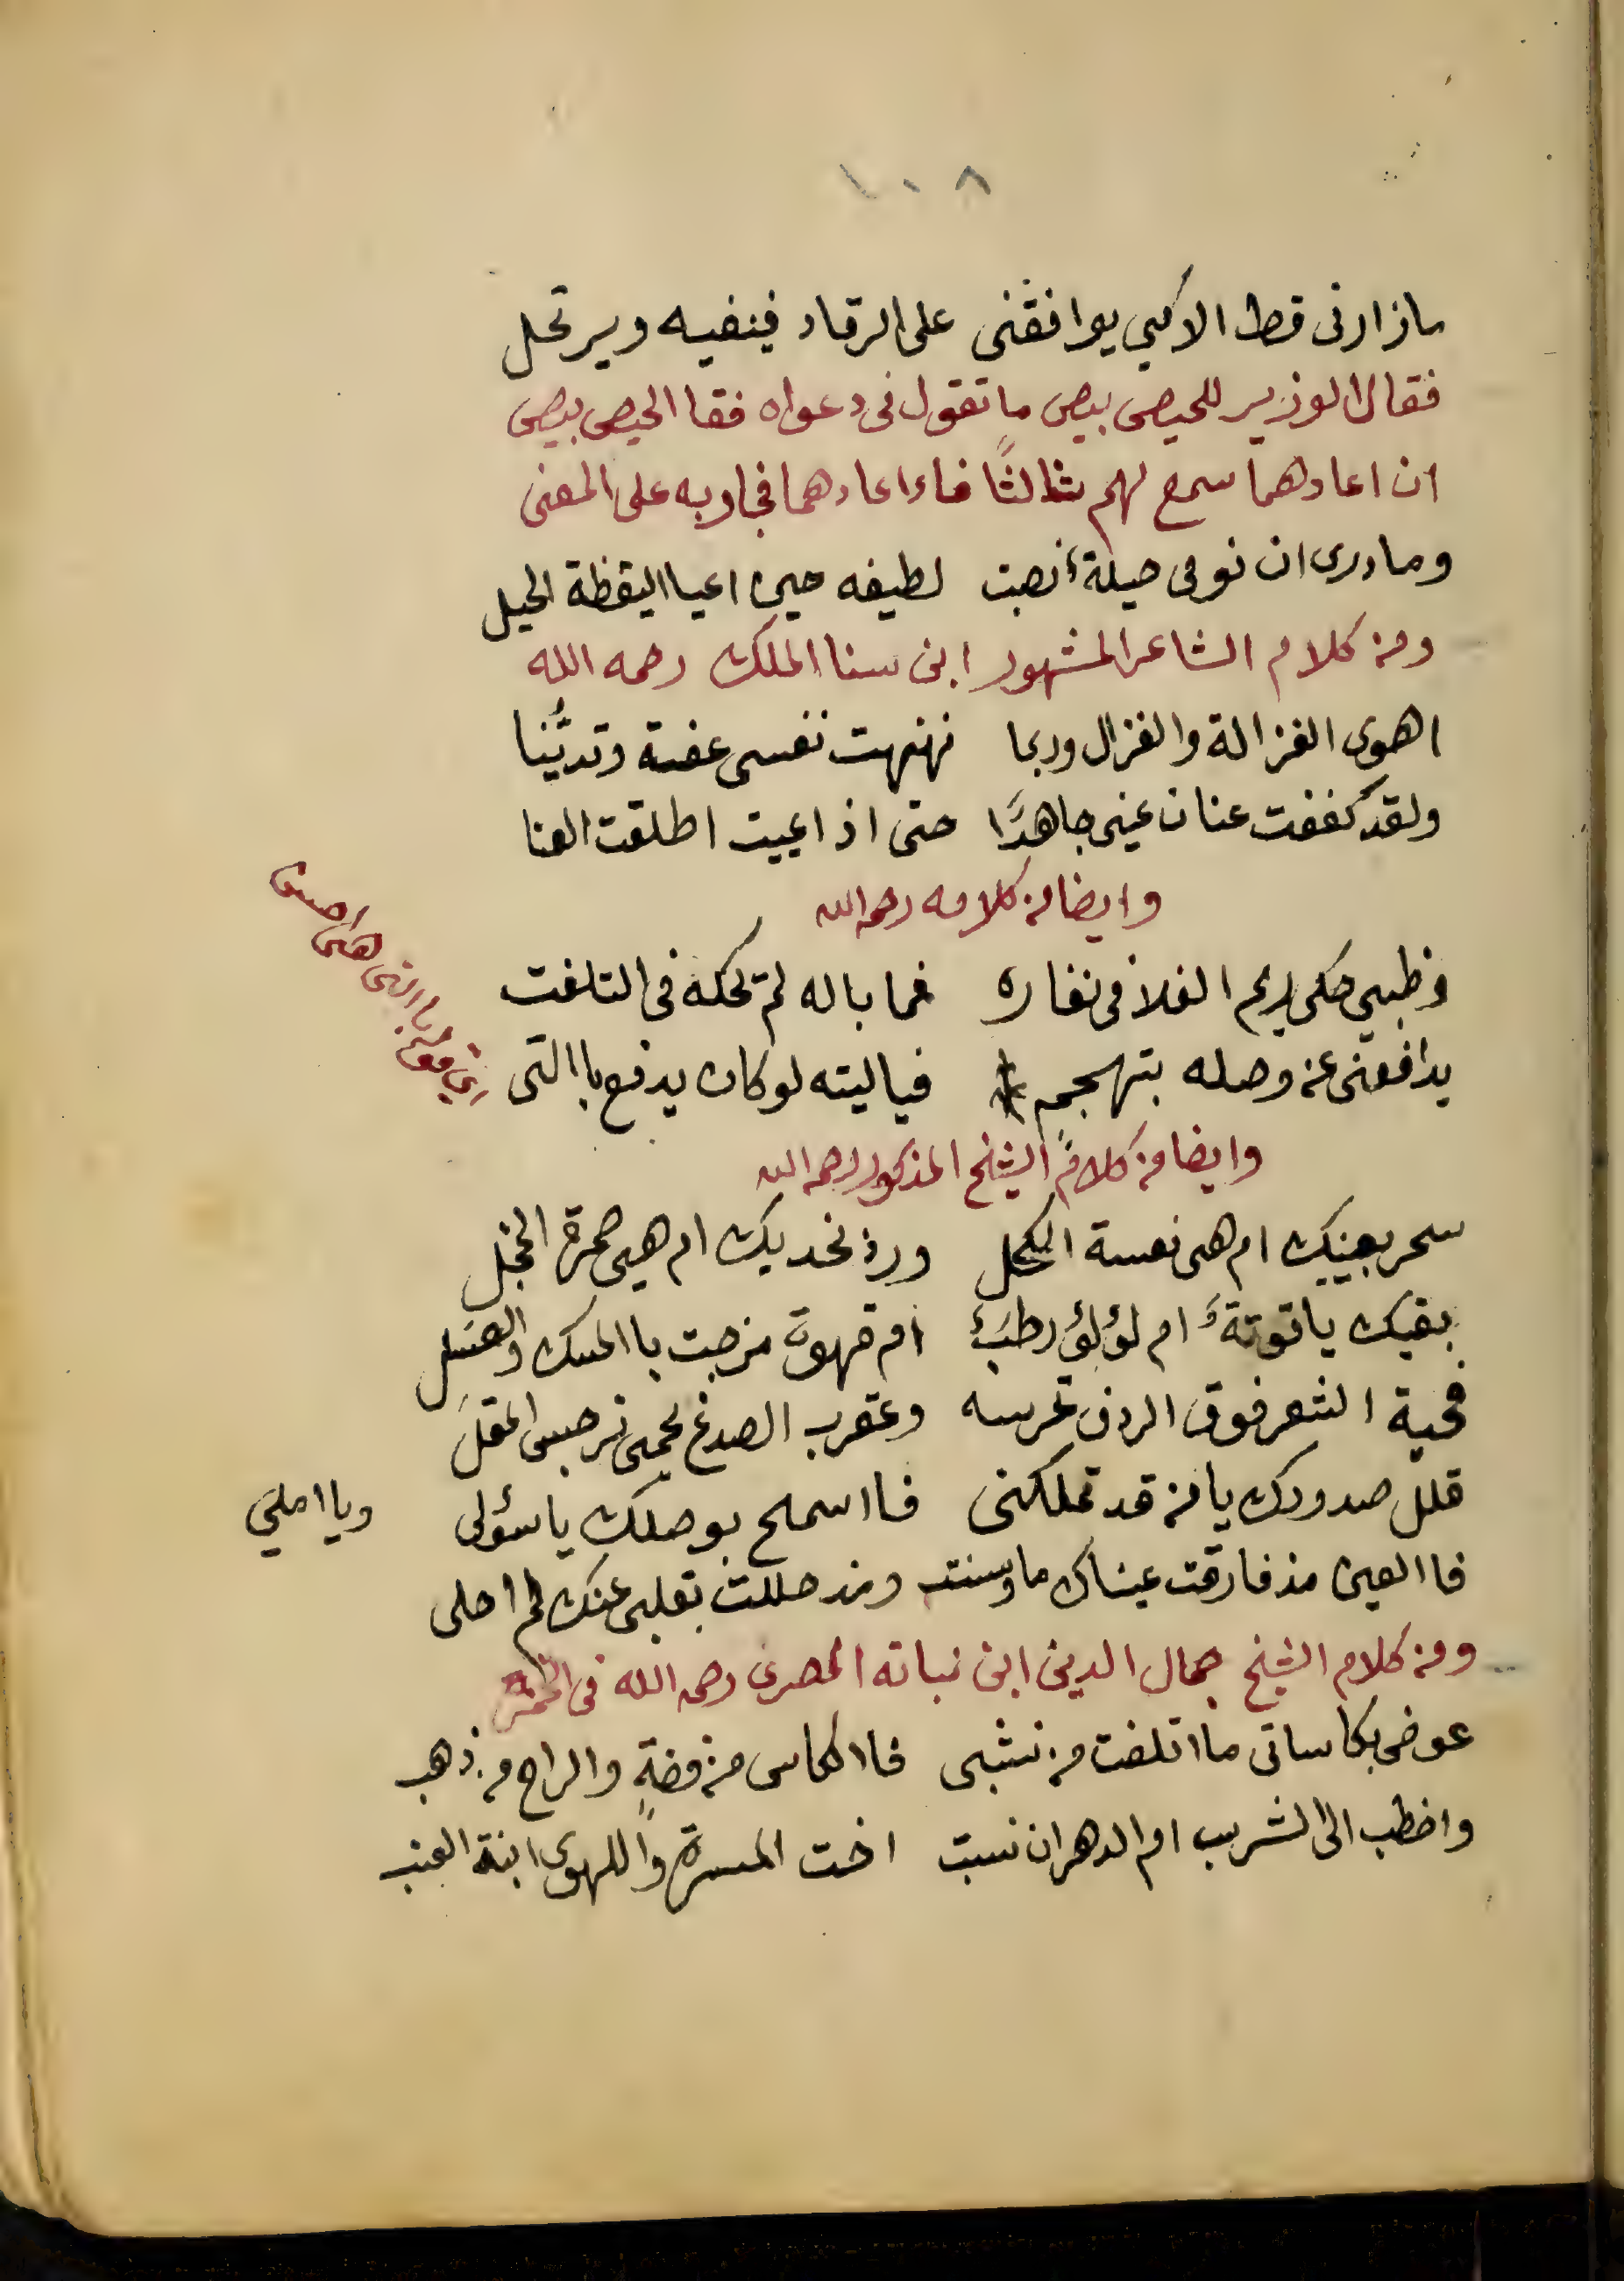 ١٠٨
ما زارنى قط الا كي يوافقنى على الرقاد فينفيه ويرتحل
فقال الوزير للحيص بيص ما تقول فى دعواه فقا الحيص بيص
ان اعادهما سمع لهم ثالثًا فاء اعادهما فجاوبه على المعنى
وما درى ان نومى حيلةٌ نصبت لطيفه حين اعيا اليقظة الحيل
ومن كلام الشاعر المشهور ابن سنا الملك رحمه الله
اهوى الغزالة والغزال وربما نهنهت نفسى عفة وتديُّنا
ولقد كففت عنان عينى جاهدًا حتى اذا اعييت اطلقت العنا
وايضا من كلامه رحمه الله
وظبي حكى ريم الفلا فى نفاره فما باله لم تحكه فى التلفت
يدافعنى عن وصله بتهجم فياليته لو كان يدفع باالتى
اي قوله باالتى هى احسن
وايضا من كلام الشيخ المذكور رحمه الله
سحر بعينيك ام هى نعسة الكحل ورد نخديك ام هيى حمرة الخجل
بفيك ياقوتةٌ ام لؤلؤ رطبٌ ام قهوة مزجت باالمسك والعسل
فحية الشعر فوق الردف تحرسه وعقرب الصدغ يحمى نرجس المقل
قلل صدودك يا من قد تملكنى فااسمح بوصلك يا سؤلى ويا املي
فاالعين مذ فارقت عيناك ما وسنت ومذ حللت بقلبى عنك لم احلى
ومن كلام الشيخ جمال الدين ابن نباته المصرى رحمه الله فى الخمر
عوض بكاساتى ما اتلفت من نشبى فاالكاس من فضةٍ والراح من ذهب
واخطب الى الشرب ام الدهر ان نسبت اخت المسرة واللهوى ابنة العنب